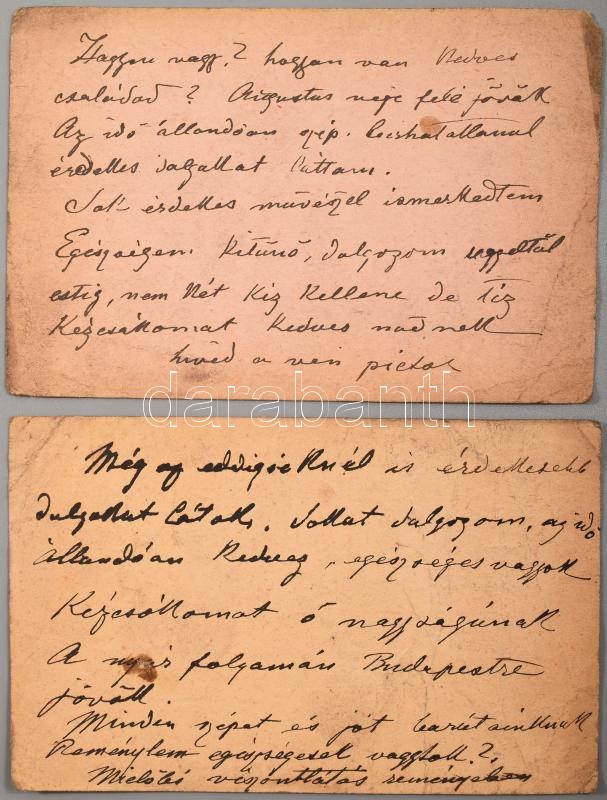 Hogyan vagy? hogyan van Kedves
családod? Augustus vége felé jövök
Az idő állandóan szép. leirhatatlanul
érdekes dolgokat láttam.
Sok érdekes művészel ismerkedtem
Egészségem kitünő, dolgozom reggeltől
estig, nem két kéz kellene de tíz
Kézcsókomat kedves nődnek
hived a vén pictor
darabanth
Még az eddigieknél is érdekesebb
dolgokat látok. Sokat dolgozom, az idő
állandóan kedvez, egészséges vagyok
Kézcsókomat ő nagyságának
A nyár folyamán Budapestre
jövök.
Minden szépet és jót barátainknak
Remélylem egészségesek vagytok?
Mielőbbi viszontlátás reményében